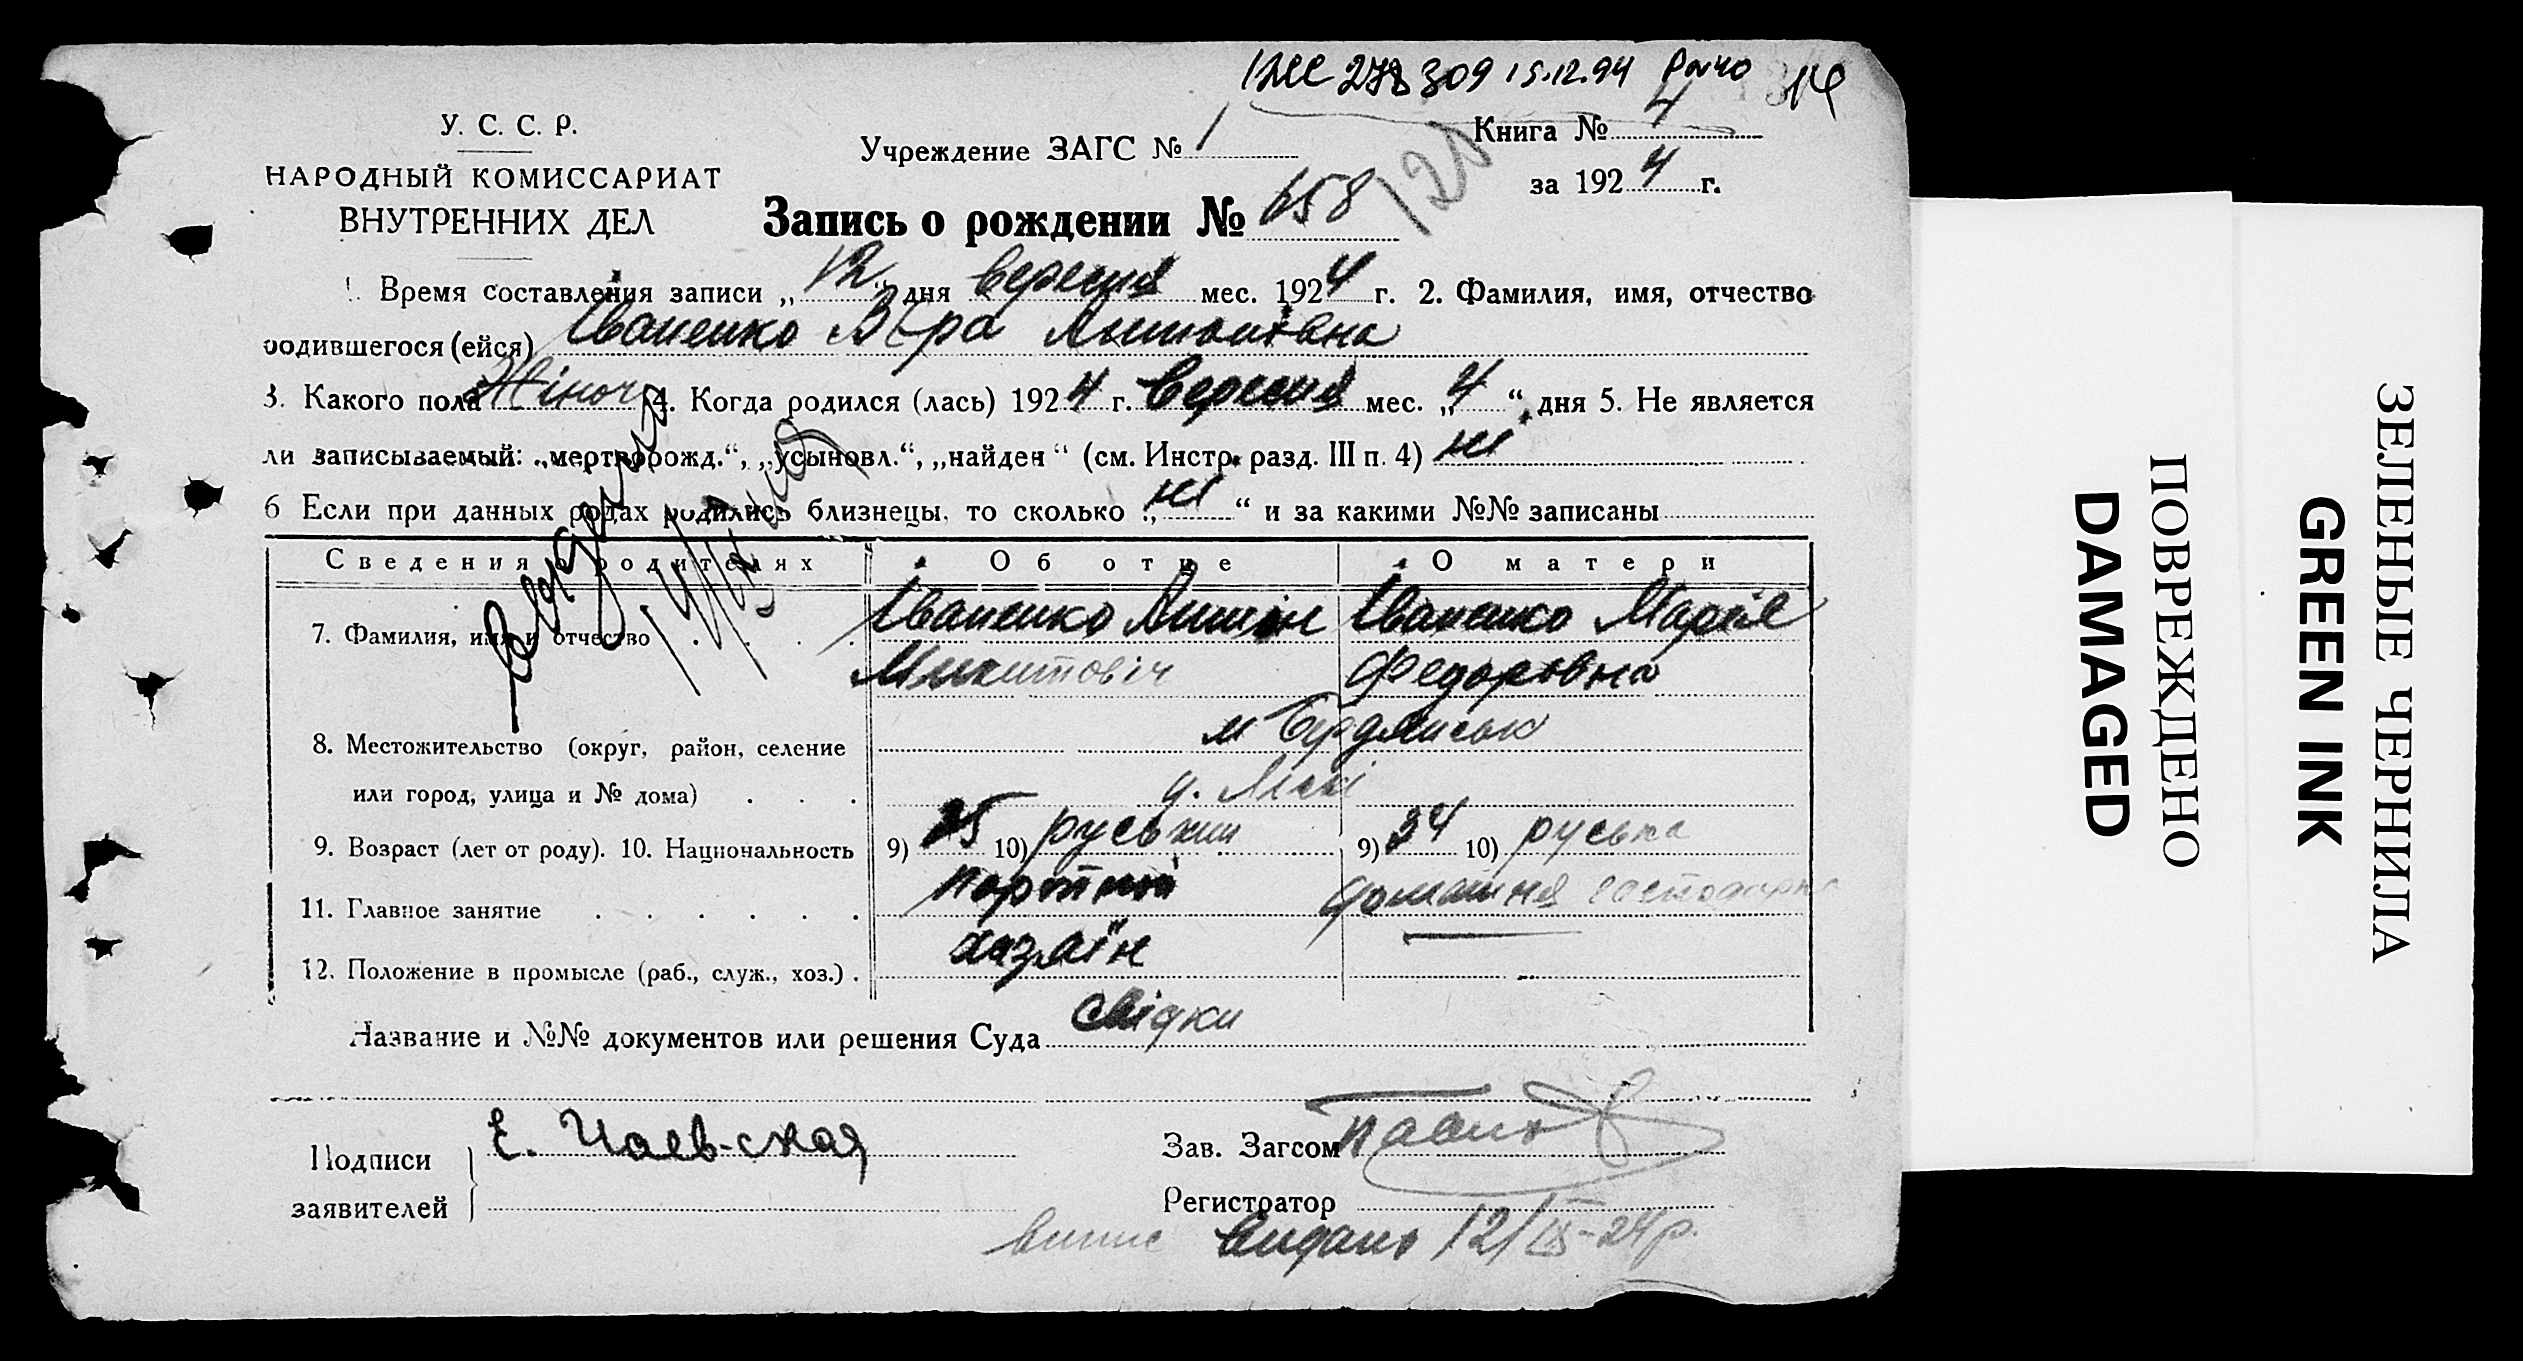 ІЖС 278309 15.12.94
У. С. С. Р.
НАРОДНЫЙ КОМИССАРИАТ
ВНУТРЕННИХ ДЕЛ
Учреждение ЗАГС № 1
Книга № 4
за 1924 г.
Запись о рождении № 658
120
1. Время составления записи „12“ дня вересня мес. 1924 г. 2. Фамилия, имя, отчество
родившегося (ейся) Іваненко Віра Антонівна
3. Какого пола Жіноч. 4. Когда родился (лась) 1924 г. вересня мес. „4“ дня 5. Не является
ли записываемый: „мертворожд.“, „усыновл.“, „найден“ (см. Инстр. разд. III п. 4) ні
6 Если при данных родах родились близнецы, то сколько „ні“ и за какими №№ записаны
Сведения о родителях Об отце О матери
7. Фамилия, имя и отчество Іваненко Антон Іваненко Марія
Микитовіч Федоровна
8. Местожительство (округ, район, селение м Бердянськ
или город, улица и № дома) д. Ліскі
9. Возраст (лет от роду). 10. Национальность 9) 35 10) руський 9) 34 10) руська
11. Главное занятие портной домашня господарка
12. Положение в промысле (раб., служ., хоз.) хазяїн
Название и №№ документов или решения Суда свідки
Подписи
заявителей
Е. Чаевская
Зав. Загсом
Регистратор
випис видано 12/IX-24р.
ЗЕЛЕНЫЕ ЧЕРНИЛА
GREEN INK
ПОВРЕЖДЕНО
DAMAGED